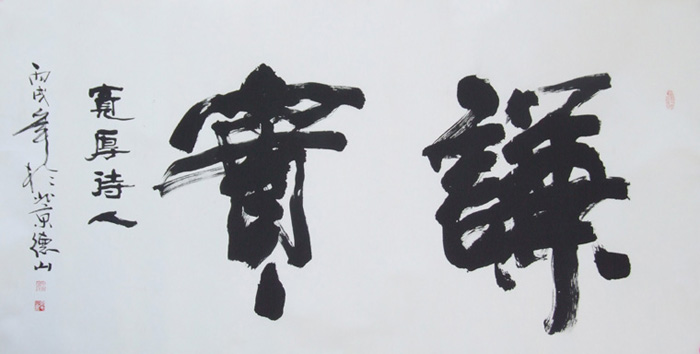 謙實
寬厚待人
丙戌年於北京德山